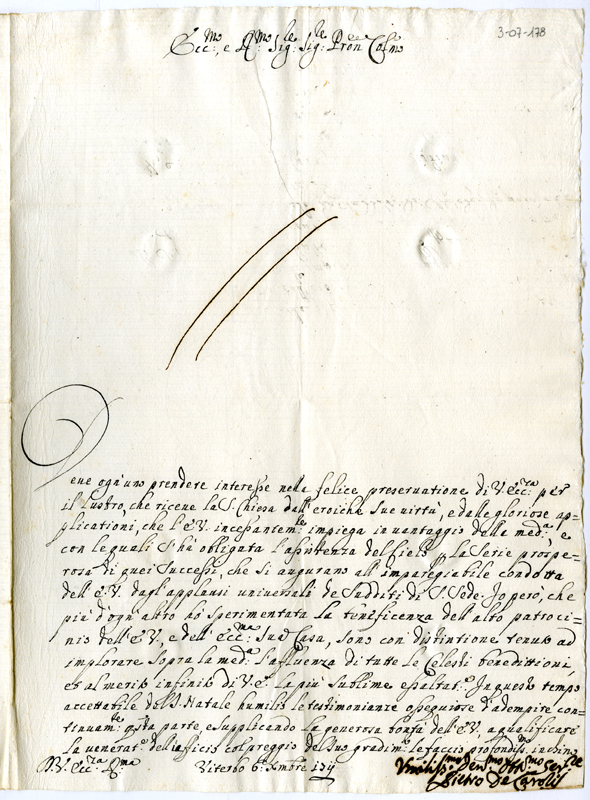 3-07-178
Ecc:mo, e R:mo Sig:le Sig:le Pron Colmo
Deue ogn'uno prendere interesse nella felice preseruatione di V. Ecc:za per
il lustro, che riceue la S. Chiesa dall'eroiche sue uirtù, e dalle gloriose ap=
plicationi, che l'E.V. incessantem:te impiega in uantaggio della med:a, e
con le quali s'hà obligata l'assistenza del Cielo la serie prospe=
rosa di quei successi, che si augurano all'impareggiabile condotta
dell'E.V. dagl'applausi uniuersali de Sudditi di S. Sede. Io però, che
più d'ogn'altro hò sperimentata la beneficenza dell'alto patroci=
nio dell'E.V., e dell'Ecc:ma Sua Casa, sono con distintione tenuto ad
implorare sopra la med:a l'affluenza di tutte le Celesti benedittioni,
et al merito infinito di V.E. la più sublime esaltat:e. In questo tempo
accettabile del S. Natale humilio le testimonianze ossequiose d'adempire con=
tinuam:te q:sta parte e supplicando la generosa bontà dell'E.V. a qualificare
la uenerat:e dell'afficio col preggio del suo gradim:to le faccio profondiss:mo inchino
D.V. Ecc:za R:ma Viterbo 6: Xmbre
Vmiliss:mo Deu:mo Obl:mo Ser:re
Pietro de Carolis